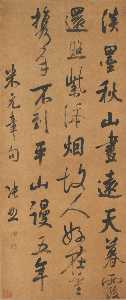 淡墨秋山畫遠天暮霞
還照紫添烟故人好在重
攜手不到平山謾五年
米元章句 張照